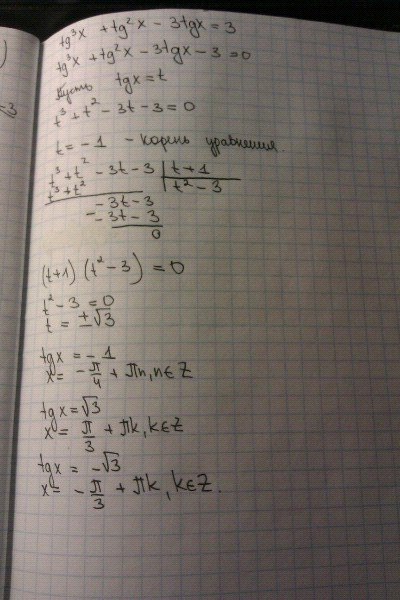 tg³x + tg²x - 3tgx = 3
tg³x + tg²x - 3tgx - 3 = 0
Пусть tgx = t
t³ + t² - 3t - 3 = 0
t = -1 - корень уравнения.
t³ + t² - 3t - 3 | t + 1
t³ + t² | t² - 3
-3t - 3
- -3t - 3
0
(t+1) (t² - 3) = 0
t² - 3 = 0
t = ±√3
tgx = -1
x = -π/4 + πn, n∈Z
tgx = √3
x = π/3 + πk, k∈Z
tgx = -√3
x = -π/3 + πk, k∈Z.